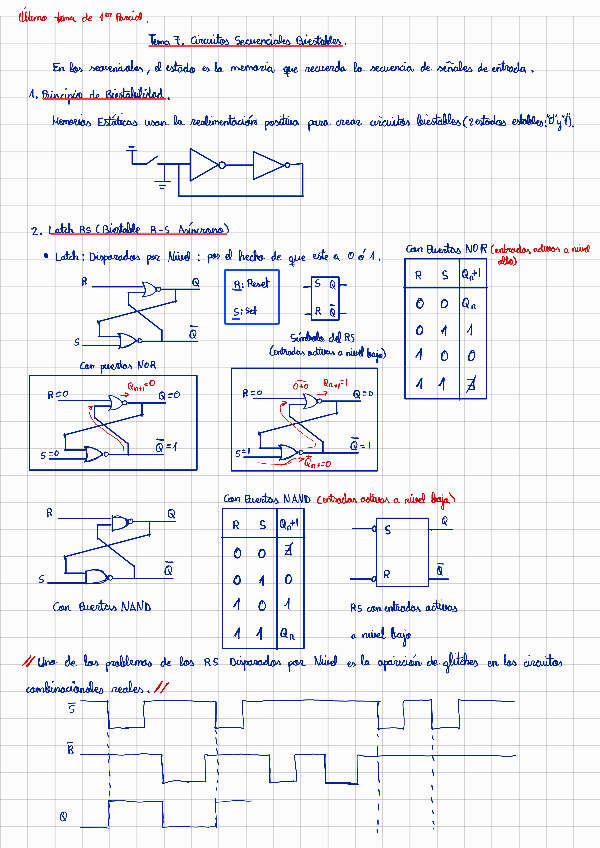 Último tema de 1er Parcial.
Tema 7. Circuitos Secuenciales Biestables.
En los secuenciales, el estado es la memoria que recuerda la secuencia de señales de entrada.
1. Principio de Biestabilidad.
Memorias Estáticas usan la realimentación positiva para crear circuitos biestables (2 estados estables, "0" y "1").
2. Latch RS (Biestable R-S Asíncrono)
• Latch: Disparados por Nivel: por el hecho de que este a 0 ó 1.
R Q
S Q̅
Con puertas NOR
R: Reset
S: Set
S Q
R Q̅
Símbolo del RS
(entradas activas a nivel bajo)
Con Puertas NOR (entradas activas a nivel
alto)
R S Qn+1
0 0 Qn
0 1 1
1 0 0
1 1 Z
R=0 Qn+1=0 Q=0
S=0 Q̅=1
R=0 0+0 Qn+1=1 Q=0
S=1 Q̅=1
Q̅n+1=0
R Q
S Q̅
Con Puertas NAND
Con Puertas NAND (entradas activas a nivel bajo)
R S Qn+1
0 0 Z
0 1 0
1 0 1
1 1 Qn
S Q
R Q̅
RS con entradas activas
a nivel bajo
// Uno de los problemas de los RS Disparados por Nivel es la aparición de glitches en los circuitos
combinacionales reales. //
S̅
R̅
Q